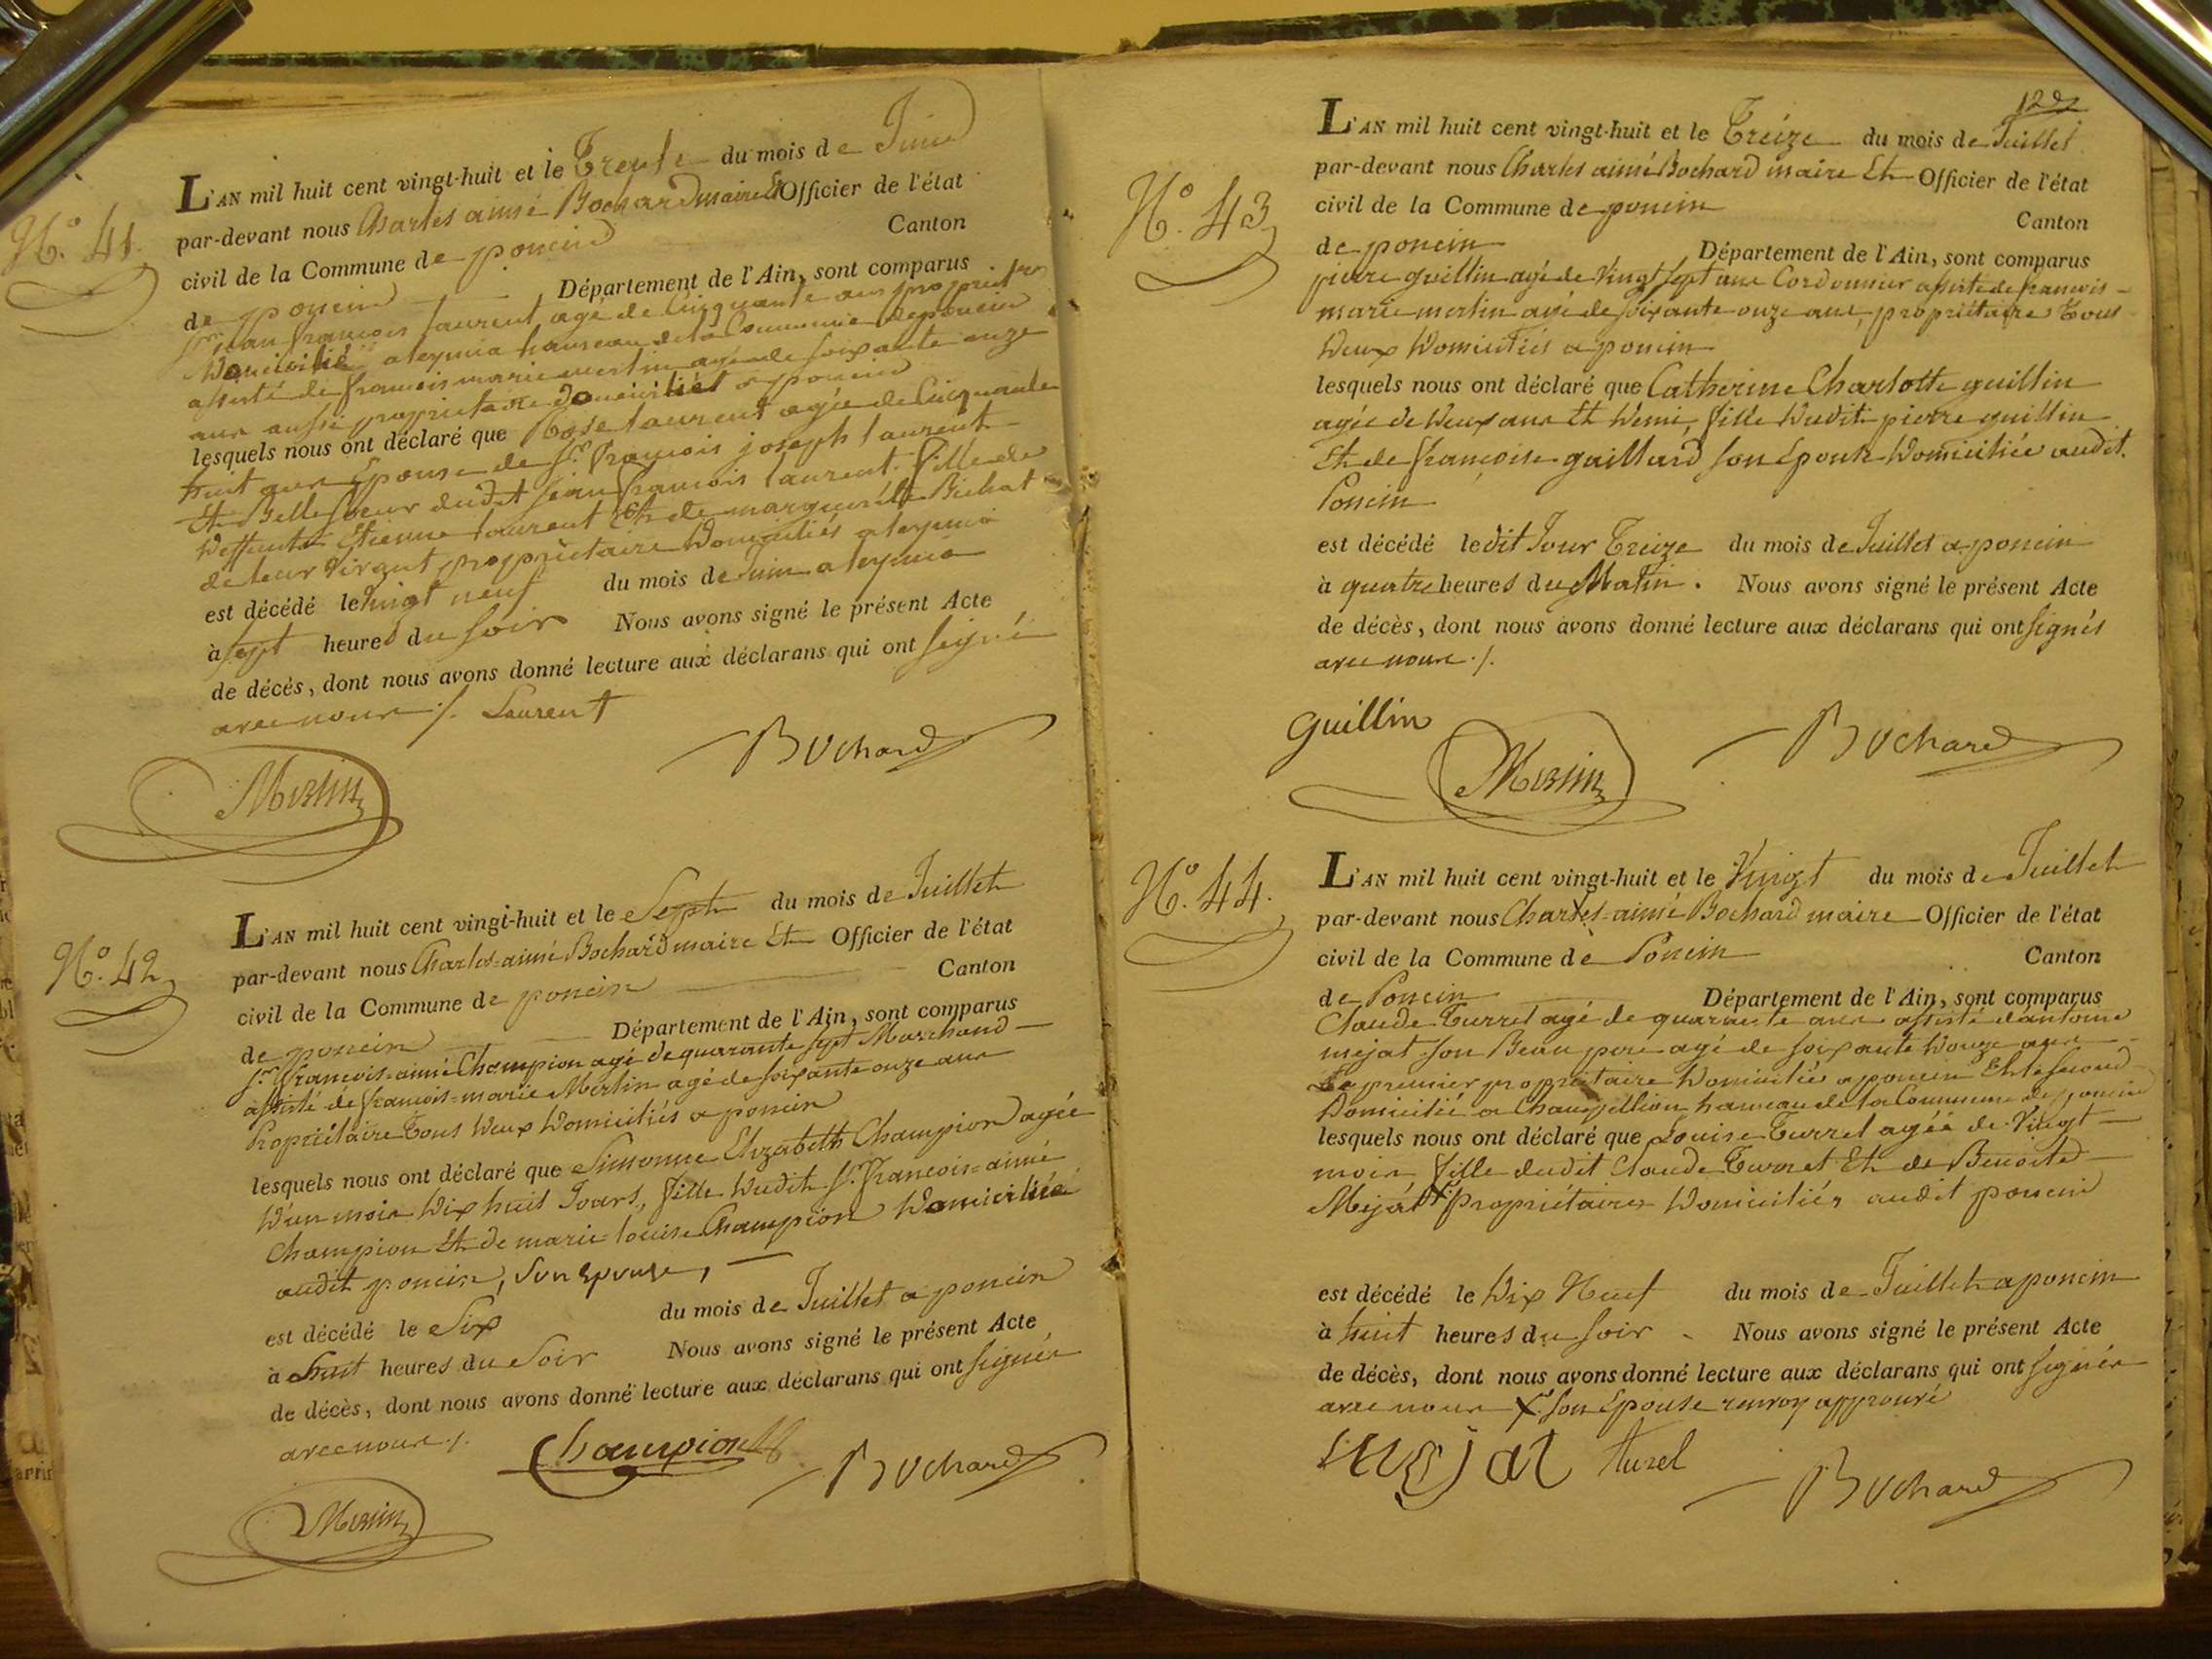 N.o 41.
L'AN mil huit cent vingt-huit et le Trente du mois de Juin
par-devant nous Charles aimé Bochard maire Et Officier de l'état
civil de la Commune de poncin Canton
de poncin Département de l'Ain, sont comparus
jean françois laurent agé de Cinquante ans
Domicilié a leymia hameau de la Commune de poncin
assisté de francois marie merlin agé de soixante onze
ans aussi proprietaire Domicilié a poncin
lesquels nous ont déclaré que Rose laurent agée de Cinquante
huit ans Epouse de Sr. françois joseph laurent
Et Belle soeur dudit jean francois laurent fille de
Deffunts Etienne laurent Et de marguerite Bichat
de leur vivant proprietaire Domiciliés a leymia
est décédé le vingt neuf du mois de Juin a leymia
à sept heures du soir Nous avons signé le présent Acte
de décès, dont nous avons donné lecture aux déclarans qui ont signé
avec nous ./. Laurent
Bochard
Merlin
N.o 42
L'AN mil huit cent vingt-huit et le Sept du mois de Juillet
par-devant nous Charles=aimé Bochard maire Et Officier de l'état
civil de la Commune de poncin Canton
de poncin Département de l'Ain, sont comparus
Sr. francois=aimé Champion agé de quarante sept Marchand
assisté de francois=marie Merlin agé de soixante onze ans
Propriétaire Tous Deux Domiciliés a poncin
lesquels nous ont déclaré que Simonne Elizabeth Champion agée
D'un mois Dix huit Jours, fille Dudit Sr. francois=aimé
Champion Et de marie louise Champion Domiciliée
audit poncin, son Epouse,
est décédé le Six du mois de Juillet a poncin
à huit heures du Soir Nous avons signé le présent Acte
de décès, dont nous avons donné lecture aux déclarans qui ont signés
avec nous ./.
Champion
Bochard
Merlin
122
N.o 43
L'AN mil huit cent vingt-huit et le Treize du mois de Juillet
par-devant nous Charles aimé Bochard maire Et Officier de l'état
civil de la Commune de poncin Canton
de poncin Département de l'Ain, sont comparus
pierre guillin agé de vingt sept ans Cordonnier assisté de francois
marie merlin agé de soixante onze ans, propriétaire Tous
Deux Domiciliés a poncin
lesquels nous ont déclaré que Catherine Charlotte guillin
agée de Deux ans Et Demi, fille Dudit pierre guillin
Et de françoise gaillard son Epouse Domiciliée audit
Poncin
est décédé ledit Jour Treize du mois de Juillet a poncin
à quatre heures du Matin. Nous avons signé le présent Acte
de décès, dont nous avons donné lecture aux déclarans qui ont signés
avec nous ./.
Guillin
Merlin
Bochard
N.o 44.
L'AN mil huit cent vingt-huit et le Vingt du mois de Juillet
par-devant nous Charles=aimé Bochard maire Officier de l'état
civil de la Commune de Poncin Canton
de Poncin Département de l'Ain, sont comparus
Claude Turrel agé de quarante ans assisté d'antoine
mejat son Beau pere agé de soixante Douze ans
Le premier propriétaire Domicilié a poncin Et le second
Domicilié a Champeillion hameau de la Commune de poncin
lesquels nous ont déclaré que Louise Turrel agée de Vingt
mois fille dudit Claude Turrel Et de Benoite
Mejat X Propriétaires Domiciliés audit poncin
est décédé le Dix Neuf du mois de Juillet a poncin
à huit heures du soir Nous avons signé le présent Acte
de décès, dont nous avons donné lecture aux déclarans qui ont signés
avec nous X son Epouse renvoy approuvé
mejat turel
Bochard